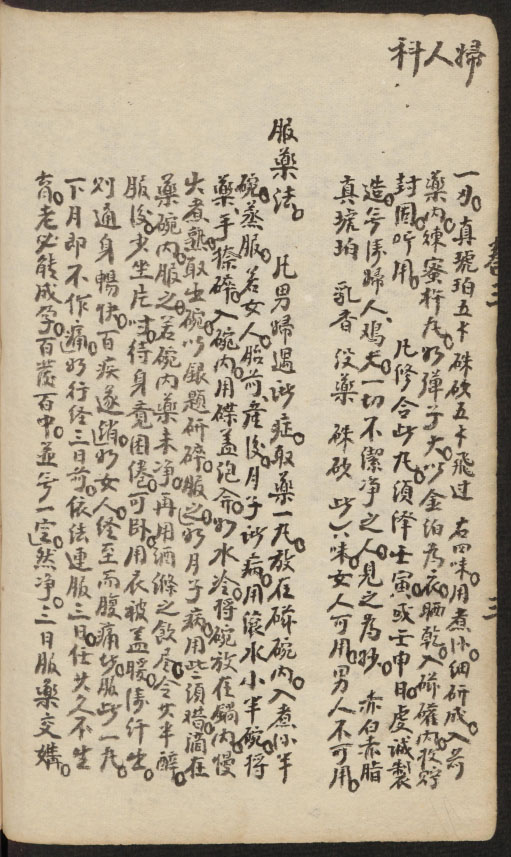 婦人科
卷三
三
一刃。真琥珀五卜硃砂五卜飛过 右四味。用煮沵細研成。入前
藥内。煉蜜杵丸。如彈子大。以金泊為衣。晒乾。入磁礶内。收貯
封固听用。 凡修合此丸。須择壬寅或壬申日。虔诚製
造。無得歸人雞犬一切不潔净之人見之為妙。 赤白赤脂
真琥珀 乳香 没藥 硃砂 此六味。女人可用。男人不可用。
服藥法。 凡男婦遇此症。取藥一丸。放在磁碗内。入煮沵半
碗。蒸服。若女人胎前產後。月子此病。用滾水小半碗。将
藥手搽碎。入碗内。用碟盖泡侖。如水冷将碗放在鍋内。慢
火煮熟。取出碗。以銀题研碎。服之。如月子病。用些須醋滴在
藥碗内。服之。若碗内藥未净。再用酒滌之飲尽。令其半醉。
服後。少坐片時。待身竟困倦。可卧。用衣被盖暖。得汗生。
则通身暢快。百疾遂消。如女人经至而腹痛皆服此一丸。
下月即不作痛。如行经三日前。依法連服三日。任其久不生
育。老必能成孕。百發百中。並無一定。然净。三日服藥交媾。